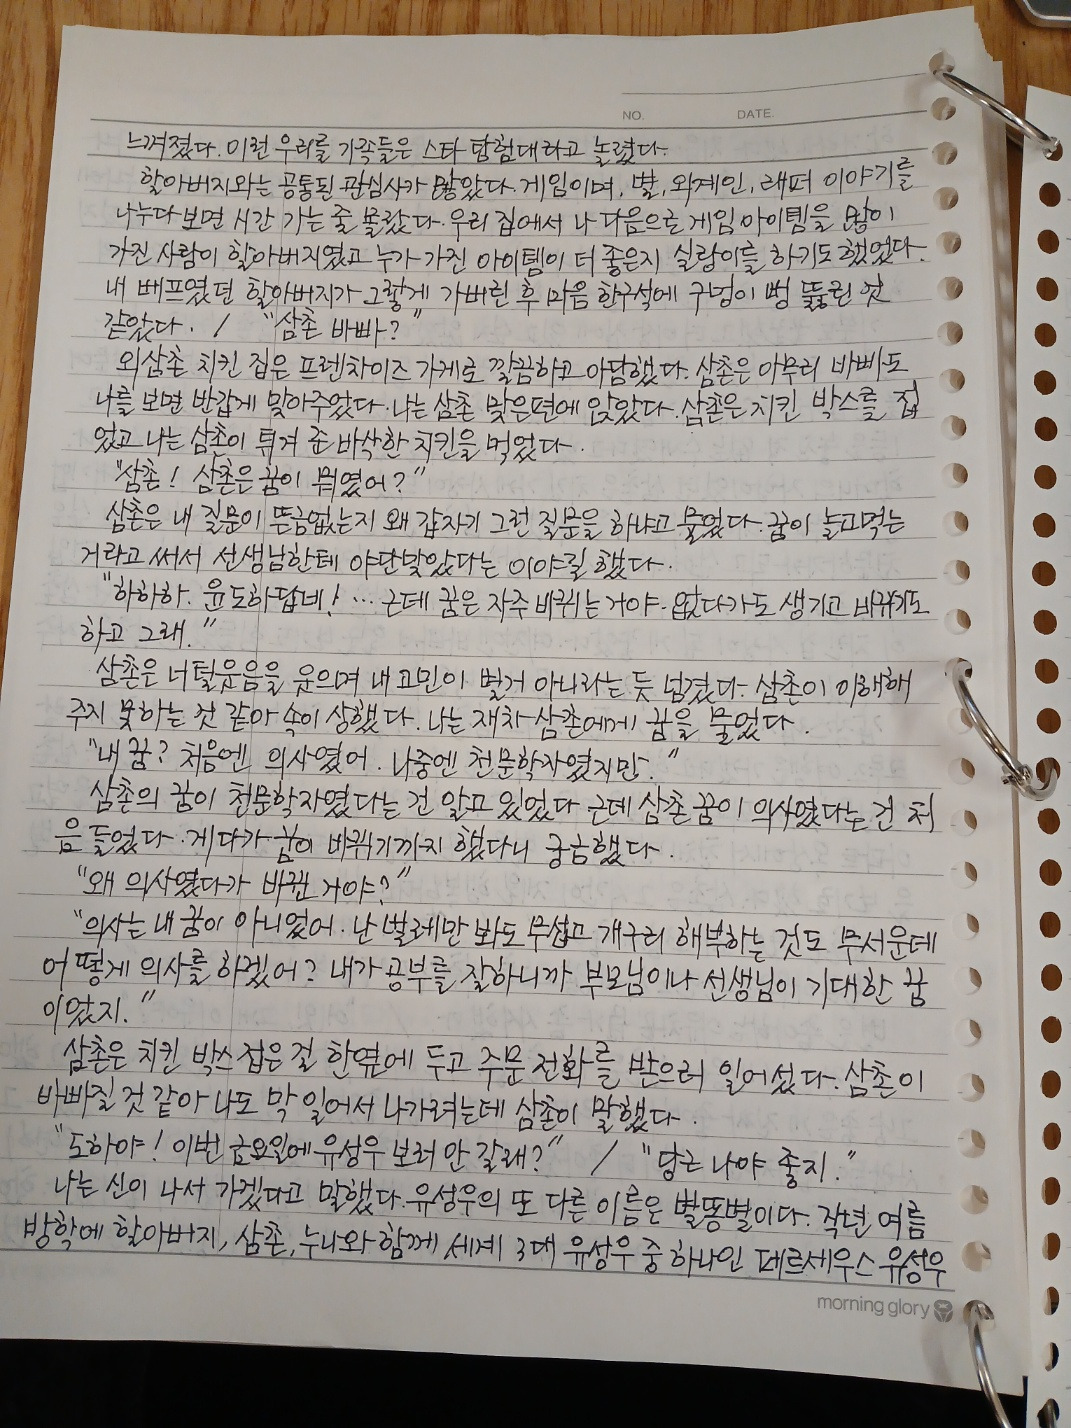 NO. DATE.
느껴졌다. 이런 우리를 가족들은 스타 탐험대라고 놀렸다.
할아버지와는 공통된 관심사가 많았다. 게임이며, 별, 외계인, 래퍼 이야기를
나누다 보면 시간 가는 줄 몰랐다. 우리 집에서 나 다음으로 게임 아이템을 많이
가진 사람이 할아버지였고 누가 가진 아이템이 더 좋은지 실랑이를 하기도 했었다.
내 베프였던 할아버지가 그렇게 가버린 후 마음 한구석에 구멍이 뻥 뚫린 것
같았다. / "삼촌 바빠?"
외삼촌 치킨 집은 프렌차이즈 가게로 깔끔하고 아담했다. 삼촌은 아무리 바빠도
나를 보면 반갑게 맞아주었다. 나는 삼촌 맞은편에 앉았다. 삼촌은 치킨 박스를 접
었고 나는 삼촌이 튀겨 준 바삭한 치킨을 먹었다.
"삼촌! 삼촌은 꿈이 뭐였어?"
삼촌은 내 질문이 뜬금없는지 왜 갑자기 그런 질문을 하냐고 물었다. 꿈이 놀고먹는
거라고 써서 선생님한테 야단맞았다는 이야릴 했다.
"하하하. 윤도하답네! … 근데 꿈은 자주 바뀌는 거야. 없다가도 생기고 바뀌기도
하고 그래."
삼촌은 너털웃음을 웃으며 내 고민이 별거 아니라는 듯 넘겼다. 삼촌이 이해해
주지 못하는 것 같아 속이 상했다. 나는 재차 삼촌에게 꿈을 물었다.
"내 꿈? 처음엔 의사였어. 나중엔 천문학자였지만."
삼촌의 꿈이 천문학자였다는 건 알고 있었다 근데 삼촌 꿈이 의사였다는 건 처
음 들었다. 게다가 꿈이 바뀌기까지 했다니 궁금했다.
"왜 의사였다가 바뀐 거야?"
"의사는 내 꿈이 아니었어. 난 벌레만 봐도 무섭고 개구리 해부하는 것도 무서운데
어떻게 의사를 하겠어? 내가 공부를 잘하니까 부모님이나 선생님이 기대한 꿈
이었지."
삼촌은 치킨 박스 접은 걸 한옆에 두고 주문 전화를 받으러 일어섰다. 삼촌이
바빠질 것 같아 나도 막 일어서 나가려는데 삼촌이 말했다.
"도하야! 이번 금요일에 유성우 보러 안 갈래?" / "당근 나야 좋지."
나는 신이 나서 가겠다고 말했다. 유성우의 또 다른 이름은 별똥별이다. 작년 여름
방학에 할아버지, 삼촌, 누나와 함께 세계 3대 유성우 중 하나인 페르세우스 유성우
morning glory